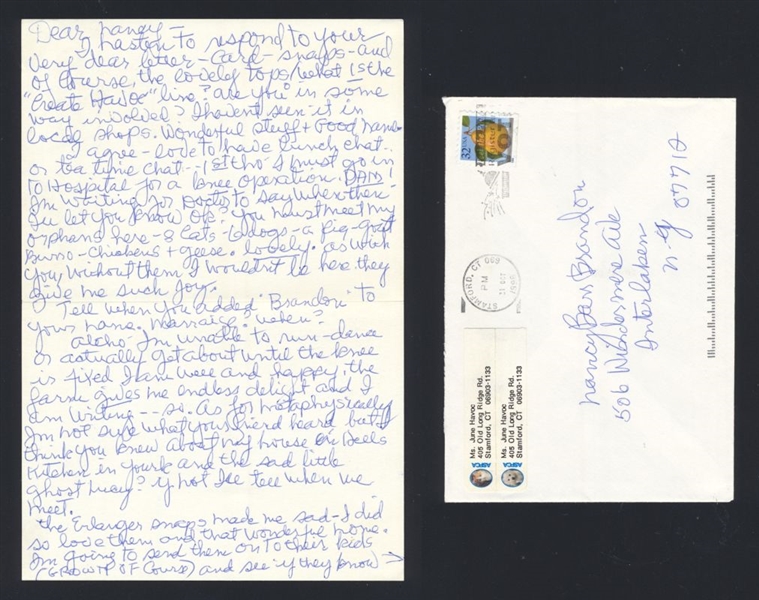 Dear Nancy –
I hasten to respond to your
very dear letter – card – snaps – and
of course, the lovely tops. What is the
"Create Havoc" line? are you in some
way involved? I havent seen it in
local shops. Wonderful stuff + Good name
I agree – love to have lunch chat –
or tea time chat – 1st tho' I must go in
to Hospital for a knee operation. DAM!
Im waiting for Doctor to say when then
I'll let you know OK? You must meet my
orphans here – 8 Cats – 6 dogs – a pig – goat
Burro – chickens + geese. lovely. as with
you, without them I wouldn't be here they
give me such joy.
Tell when you added "Brandon" to
your name. Marriage? when?
altho – Im unable to run – dance
or actually get about until the knee
is fixed I am well and happy. the
farm gives me endless delight and I
am writing -- so. As for metaphysically
Im not sure what your friend heard but I
think you knew about my house in Hells
Kitchen in and the sad little
ghost Lucy? if not I'll tell when we
meet.
the Erlanger snaps made me sad – I did
so love them and that wonderful home.
Im going to send them on to their kids
(GROWN OF COURSE) and see if they know →
32 USA
STAMFORD, CT 069
PM
1997
Nancy Barr Brandon
506 Windermere Ave
Interlaken
N-J 07712
Ms. June Havoc
405 Old Long Ridge Rd.
Stamford, CT 06903-1133
ASPCA
Ms. June Havoc
405 Old Long Ridge Rd.
Stamford, CT 06903-1133
ASPCA